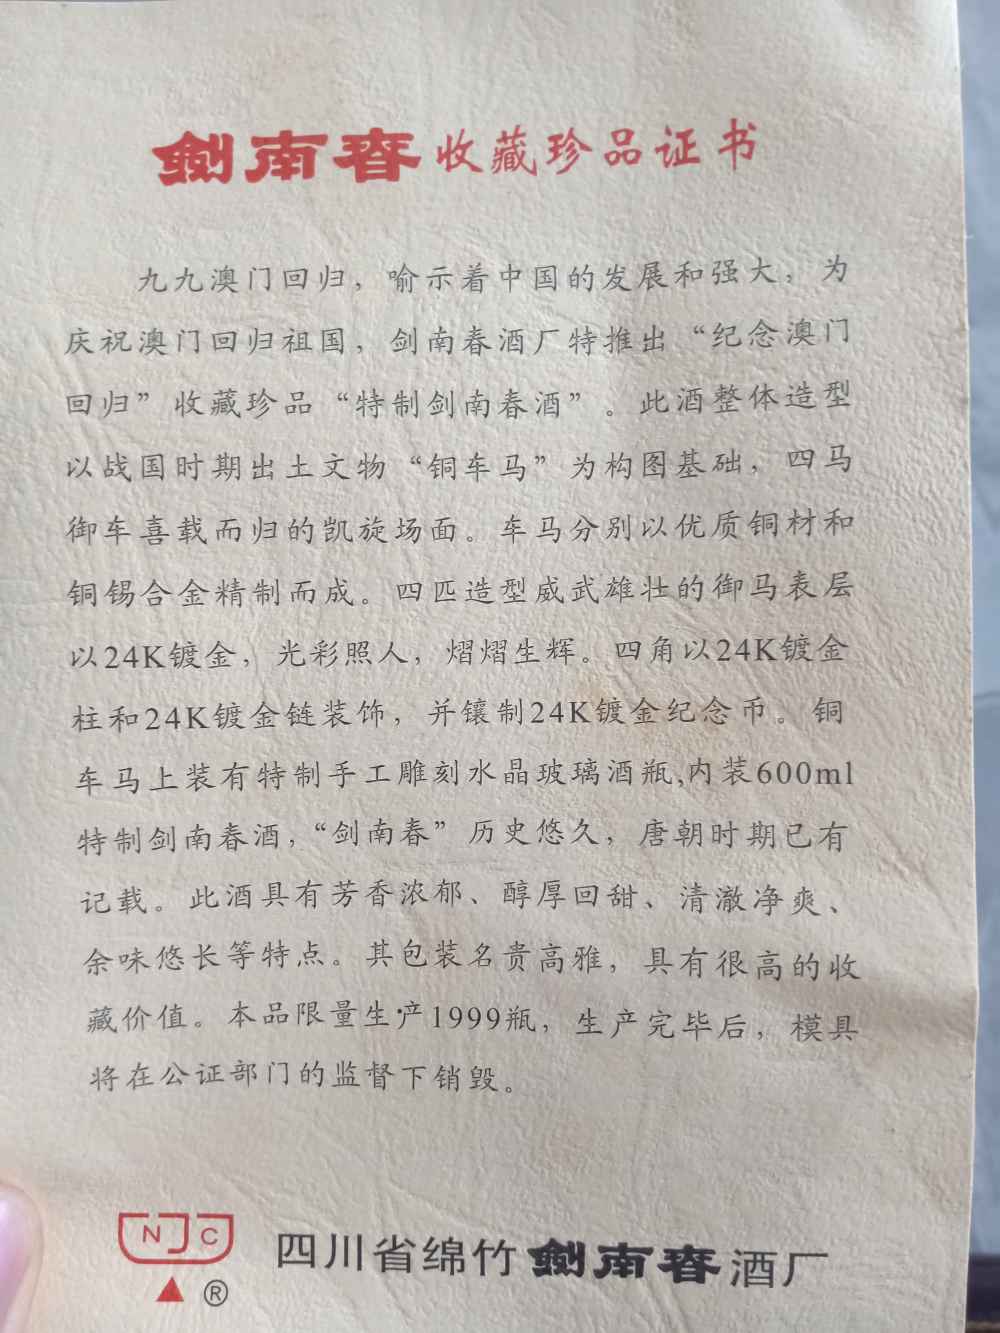 剑南春收藏珍品证书
九九澳门回归，喻示着中国的发展和强大，为
庆祝澳门回归祖国，剑南春酒厂特推出“纪念澳门
回归”收藏珍品“特制剑南春酒”。此酒整体造型
以战国时期出土文物“铜车马”为构图基础，四马
御车喜载而归的凯旋场面。车马分别以优质铜材和
铜锡合金精制而成。四匹造型威武雄壮的御马表层
以24K镀金，光彩照人，熠熠生辉。四角以24K镀金
柱和24K镀金链装饰，并镶制24K镀金纪念币。铜
车马上装有特制手工雕刻水晶玻璃酒瓶,内装600ml
特制剑南春酒，“剑南春”历史悠久，唐朝时期已有
记载。此酒具有芳香浓郁、醇厚回甜、清澈净爽、
余味悠长等特点。其包装名贵高雅，具有很高的收
藏价值。本品限量生产1999瓶，生产完毕后，模具
将在公证部门的监督下销毁。
NJC
®
四川省绵竹剑南春酒厂